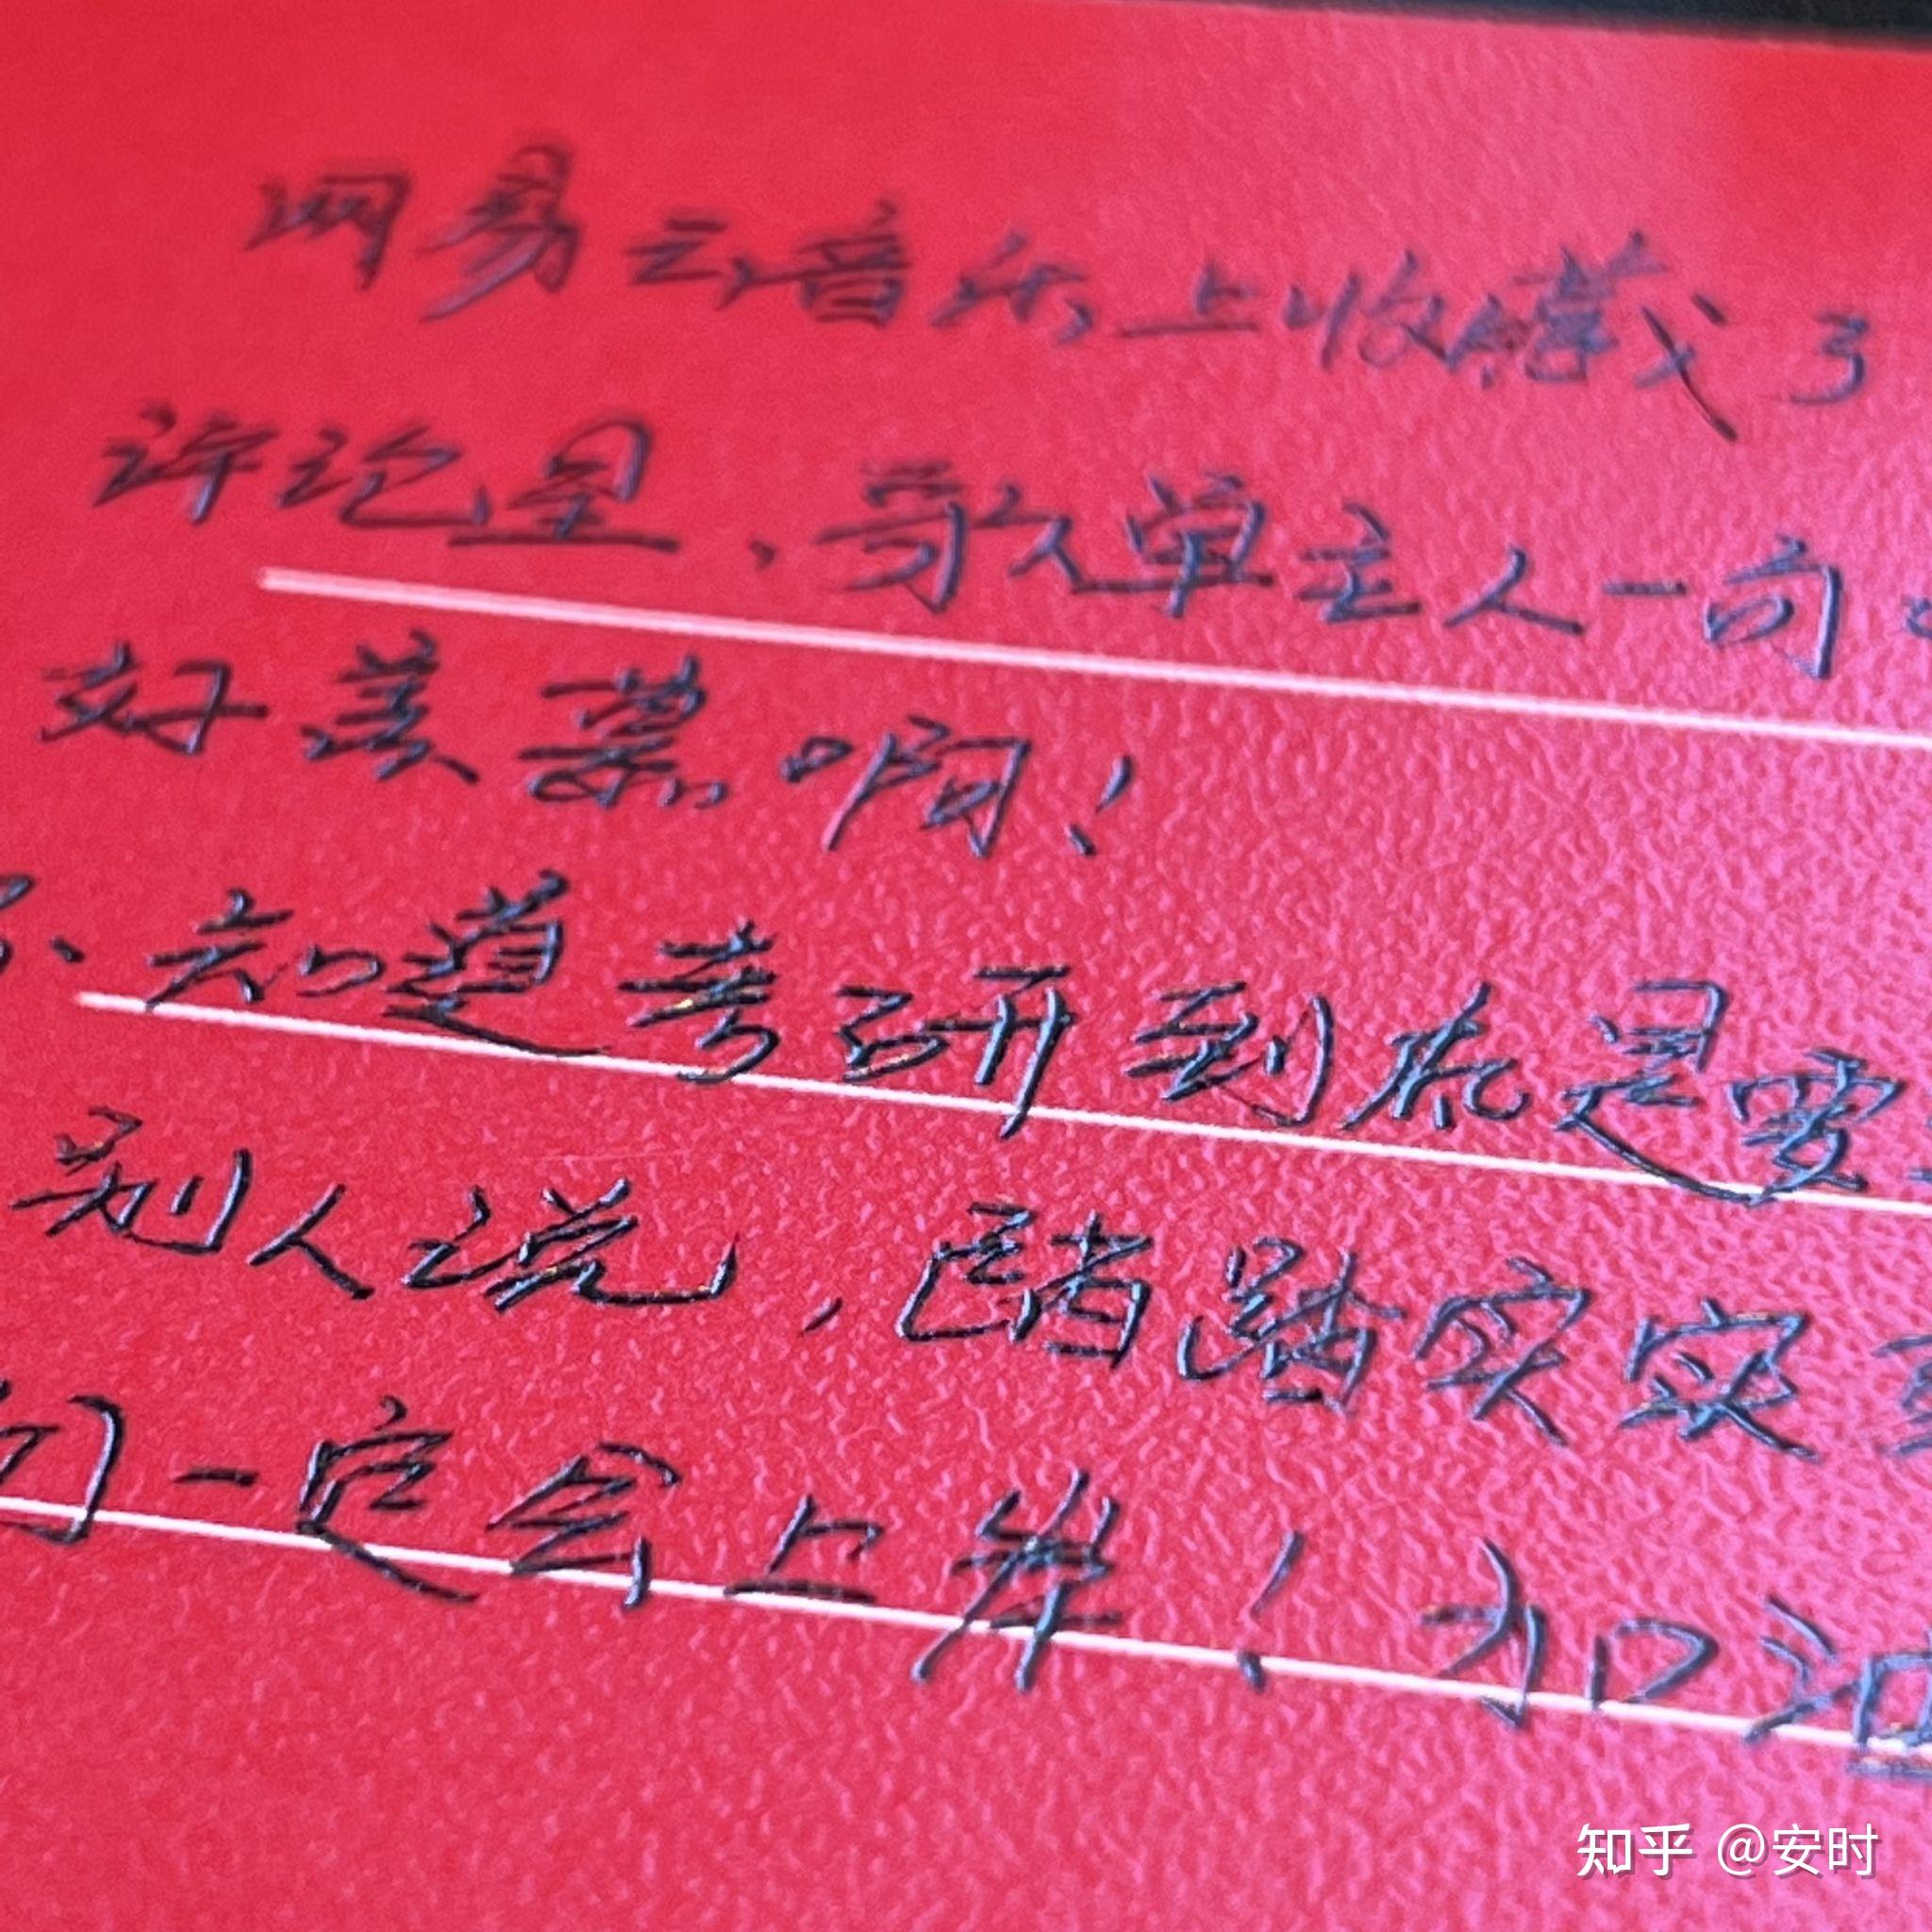 网易云音乐上收藏了
许玧星,歌单主人一句
好羡慕啊!
不知道考研到底是要
别人说,踏踏实实
们一定会上岸!加油
知乎 @安时